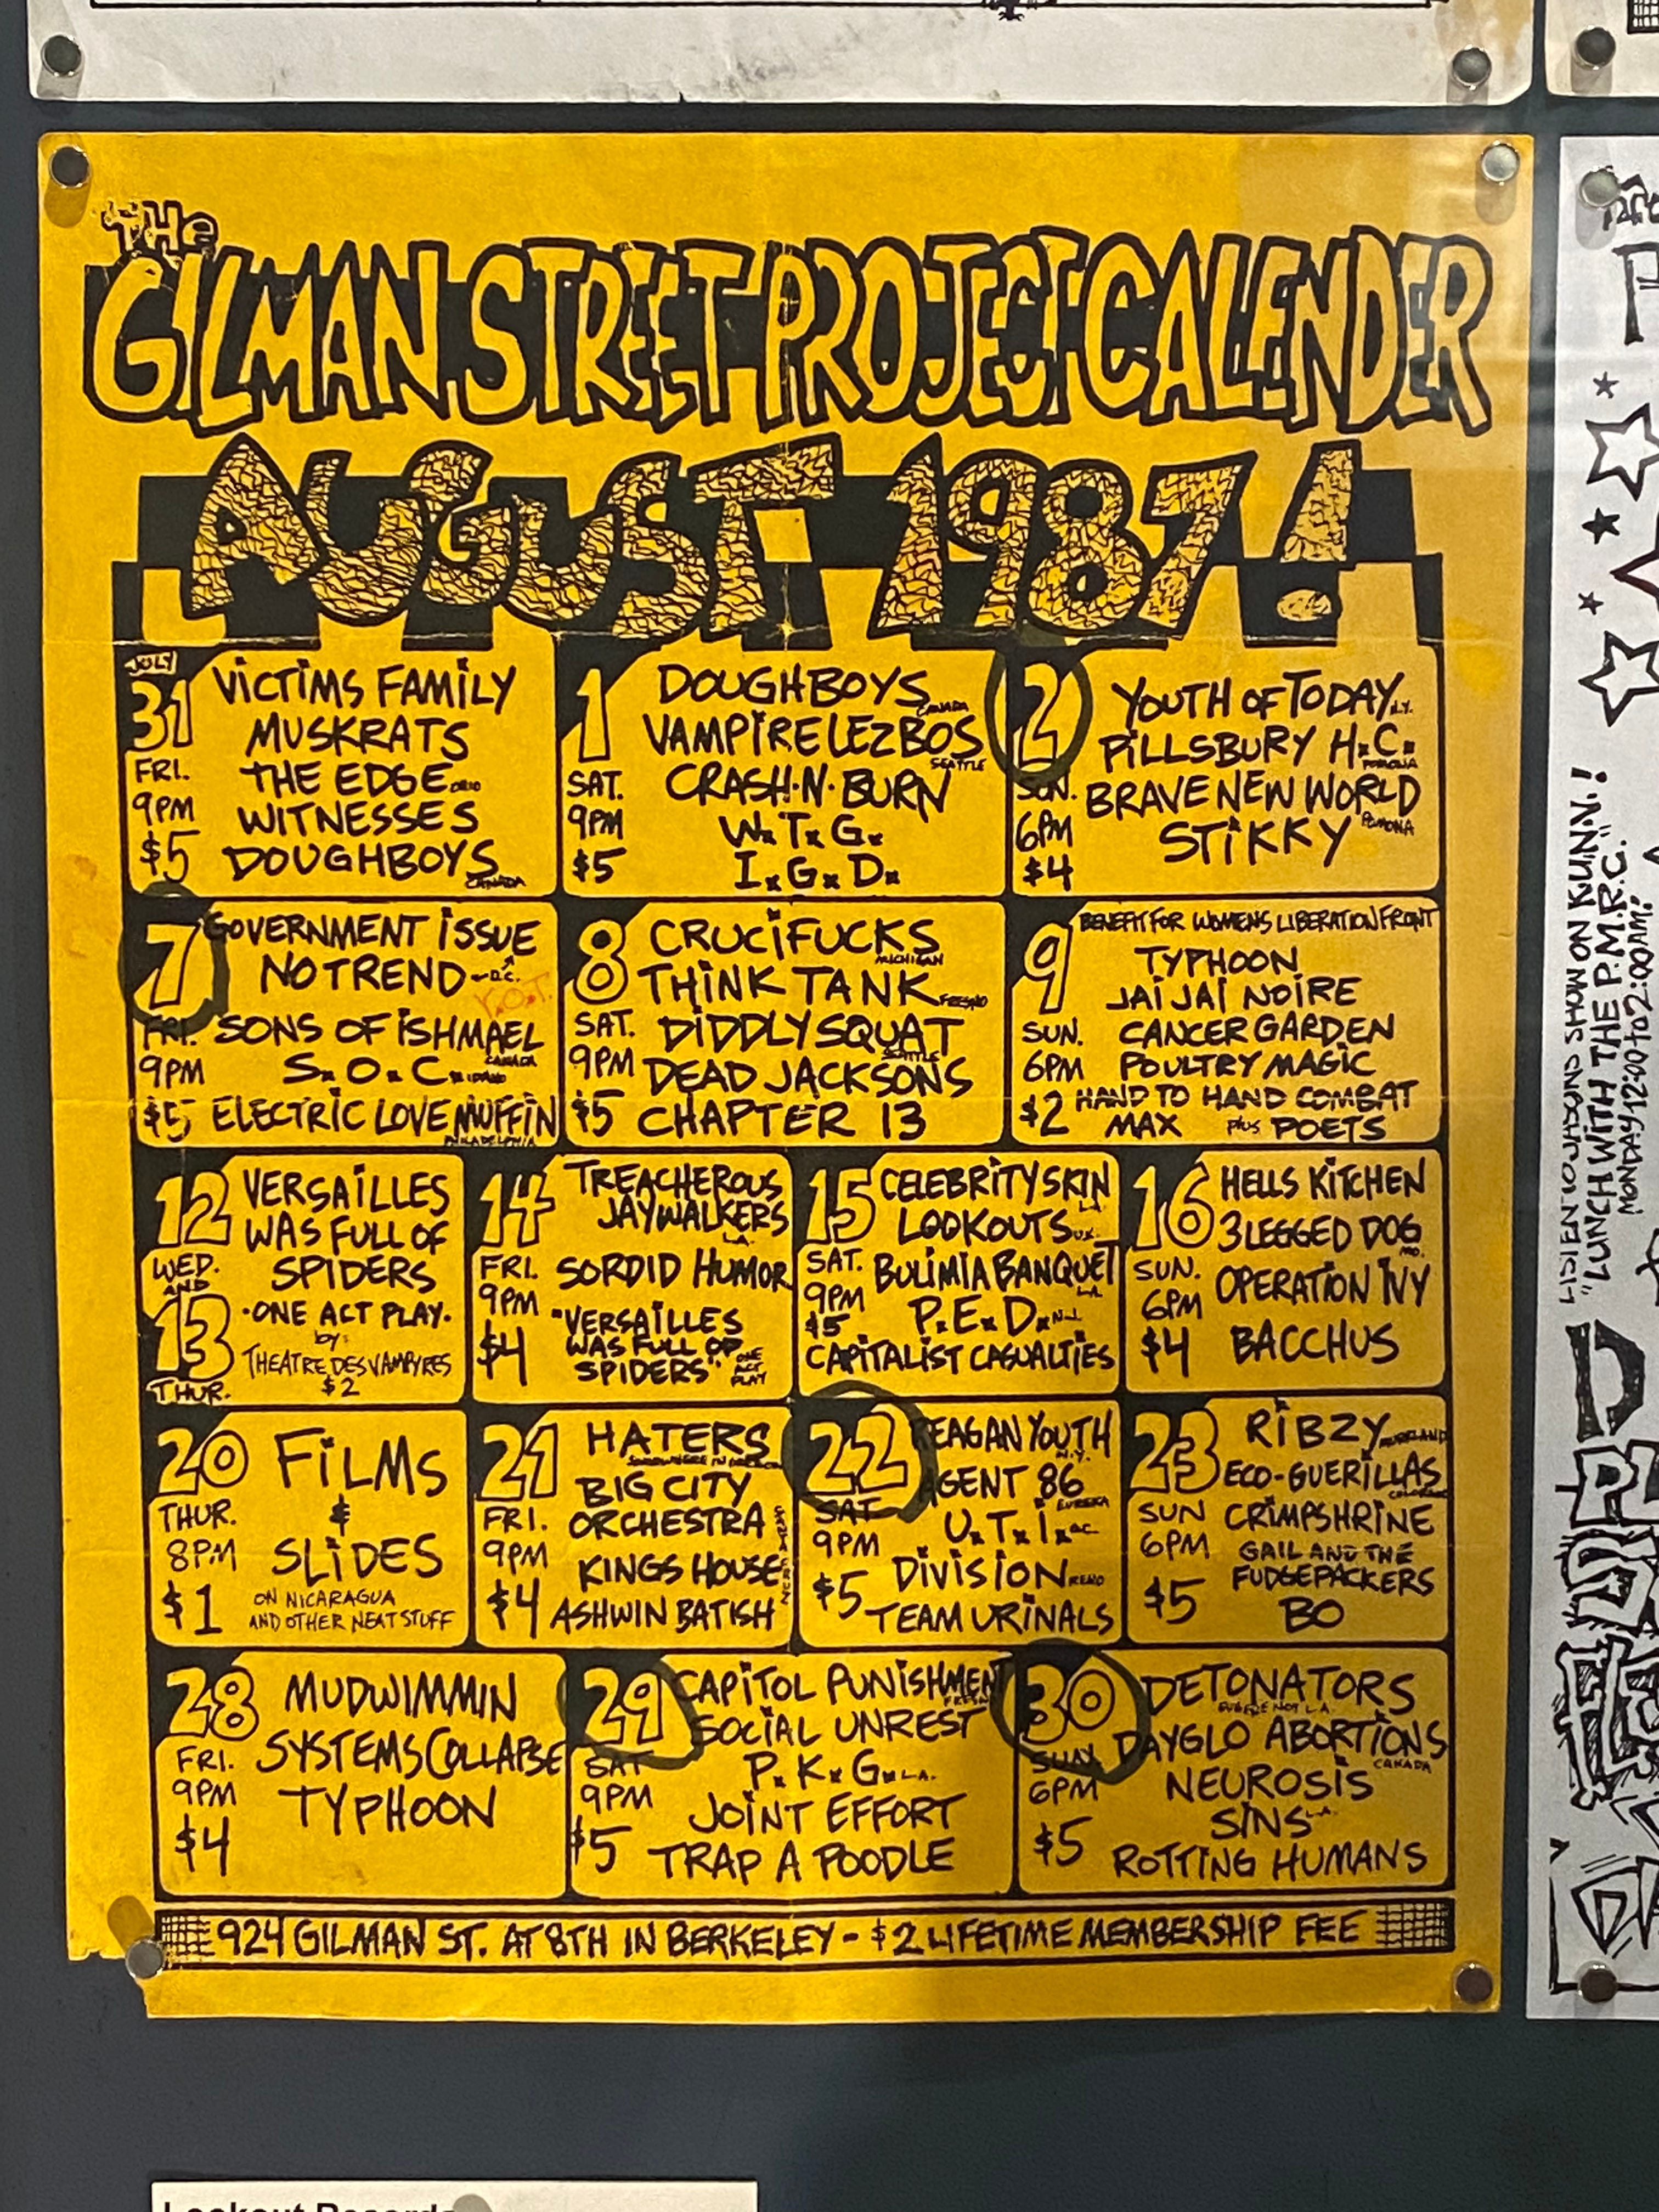 THE
GILMAN STREET PROJECT CALENDER
AUGUST 1987!
JULY
31
FRI.
9PM
$5
VICTIMS FAMILY
MUSKRATS
THE EDGE OHIO
WITNESSES
DOUGHBOYS
CANADA
1
SAT.
9PM
$5
DOUGHBOYS
CANADA
VAMPIRE LEZBOS
SEATTLE
CRASH·N·BURN
W.T.G.
I.G.D.
2
SUN.
6PM
$4
YOUTH OF TODAY N.Y.
PILLSBURY H.C.
POMONA
BRAVE NEW WORLD
POMONA
STIKKY
7
FRI.
9PM
$5
GOVERNMENT ISSUE
NO TREND D.C.
SONS OF ISHMAEL
CANADA
S.O.C. IDAHO
ELECTRIC LOVE MUFFIN
PHILADELPHIA
8
SAT.
9PM
$5
CRUCIFUCKS
MICHIGAN
THINK TANK FRESNO
DIDDLY SQUAT
SEATTLE
DEAD JACKSONS
CHAPTER 13
9
SUN.
6PM
$2
BENEFIT FOR WOMENS LIBERATION FRONT
TYPHOON
JAI JAI NOIRE
CANCER GARDEN
POULTRY MAGIC
HAND TO HAND COMBAT
MAX plus POETS
12
WED.
AND
13
THUR.
VERSAILLES
WAS FULL OF
SPIDERS
·ONE ACT PLAY·
by:
THEATRE DES VAMPYRES
$2
14
FRI.
9PM
$4
TREACHEROUS
JAYWALKERS
L.A.
SORDID HUMOR
"VERSAILLES
WAS FULL OF
SPIDERS" ONE
ACT
PLAY
15
SAT.
9PM
$5
CELEBRITY SKIN
L.A.
LOOKOUTS U.K.
BULIMIA BANQUET
L.A.
P.E.D. N.J.
CAPITALIST CASUALTIES
16
SUN.
6PM
$4
HELLS KITCHEN
3 LEGGED DOG
MO.
OPERATION IVY
BACCHUS
20
THUR.
8PM
$1
FILMS
&
SLIDES
ON NICARAGUA
AND OTHER NEAT STUFF
21
FRI.
9PM
$4
HATERS
BIG CITY
ORCHESTRA
SANTA CRUZ
KINGS HOUSE
ASHWIN BATISH
22
SAT
9PM
$5
REAGAN YOUTH
N.Y.
AGENT 86
EUREKA
U.T.I.
DIVISION RENO
TEAM URINALS
23
SUN
6PM
$5
RIBZY
ECO-GUERILLAS
COLORADO
CRIMPSHRINE
GAIL AND THE
FUDGEPACKERS
BO
28
FRI.
9PM
$4
MUDWIMMIN
SYSTEMS COLLAPSE
TYPHOON
29
SAT
9PM
$5
CAPITOL PUNISHMENT
FRESNO
SOCIAL UNREST
P.K.G. L.A.
JOINT EFFORT
TRAP A POODLE
30
SUN
6PM
$5
DETONATORS
DAYGLO ABORTIONS
CANADA
NEUROSIS
SINS L.A.
ROTTING HUMANS
924 GILMAN ST. AT 8TH IN BERKELEY - $2 LIFETIME MEMBERSHIP FEE
LISTEN TO JASONS SHOW ON K.U.N.V.!
"LUNCH WITH THE P.M.R.C."
MONDAY 12:00 to 2:00AM.
Lookout Records